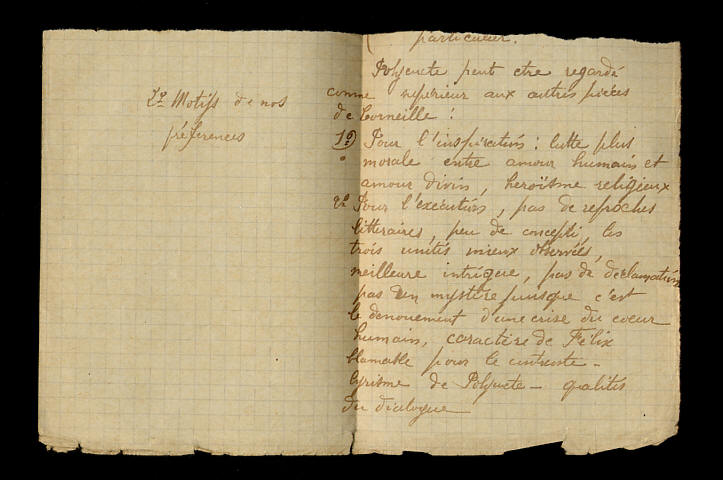 particulier.
2º Motifs de nos
préferences
Polyeucte peut etre regardé
comme supérieur aux autres pièces
de Corneille :
1º) Pour l'inspiration : lutte plus
morale entre amour humain et
amour divin, heroïsme religieux
2º Pour l'exécution, pas de reproches
litteraires, peu de concepti, les
trois unités mieux observées,
meilleure intrigue, pas de declamation
pas un mystère puisque c'est
le denouement d'une crise du coeur
humain, caractère de Félix
blamable pour le contraste -
lyrisme de Polyeucte - qualités
du dialogue